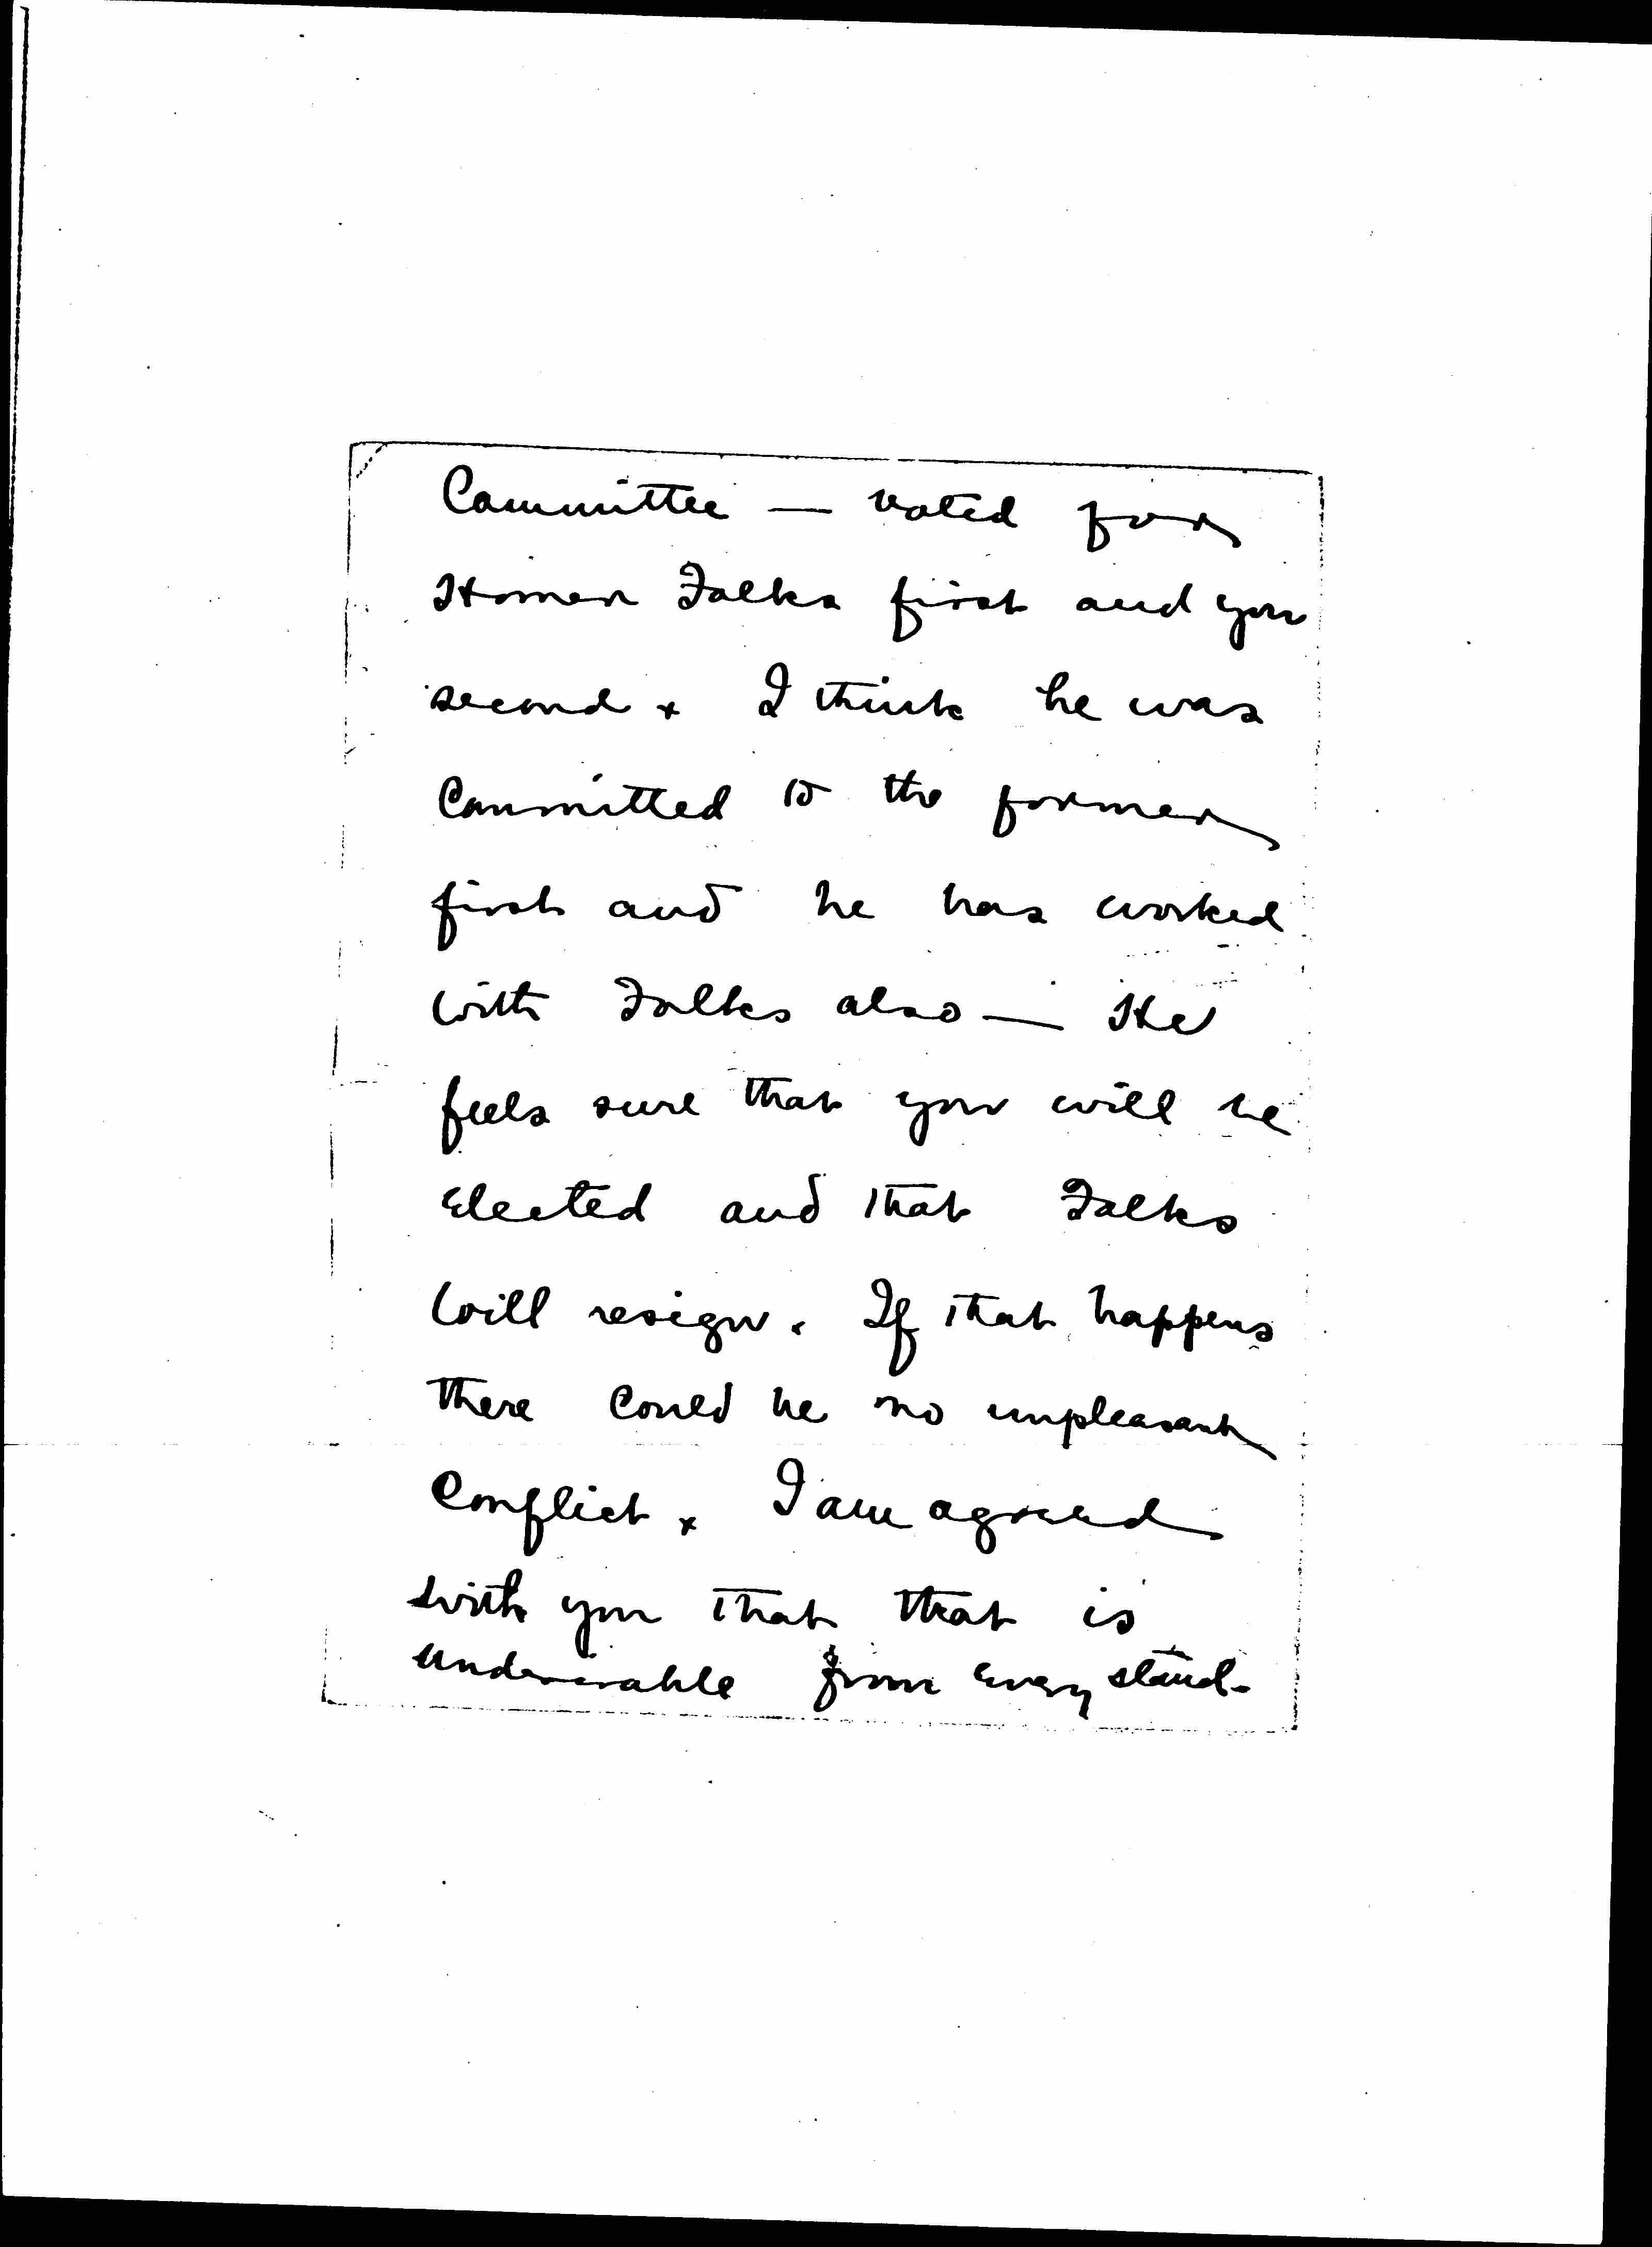 Committee — voted for
Homer Folks first and you
second x I think he was
Committed to the former
first and he has worked
with Folks also — He
feels sure that you will be
Elected and that Folks
will resign. If that happens
there Could be no unpleasant
Conflict x I am agreed
with you that that is
undesirable from Every stand-